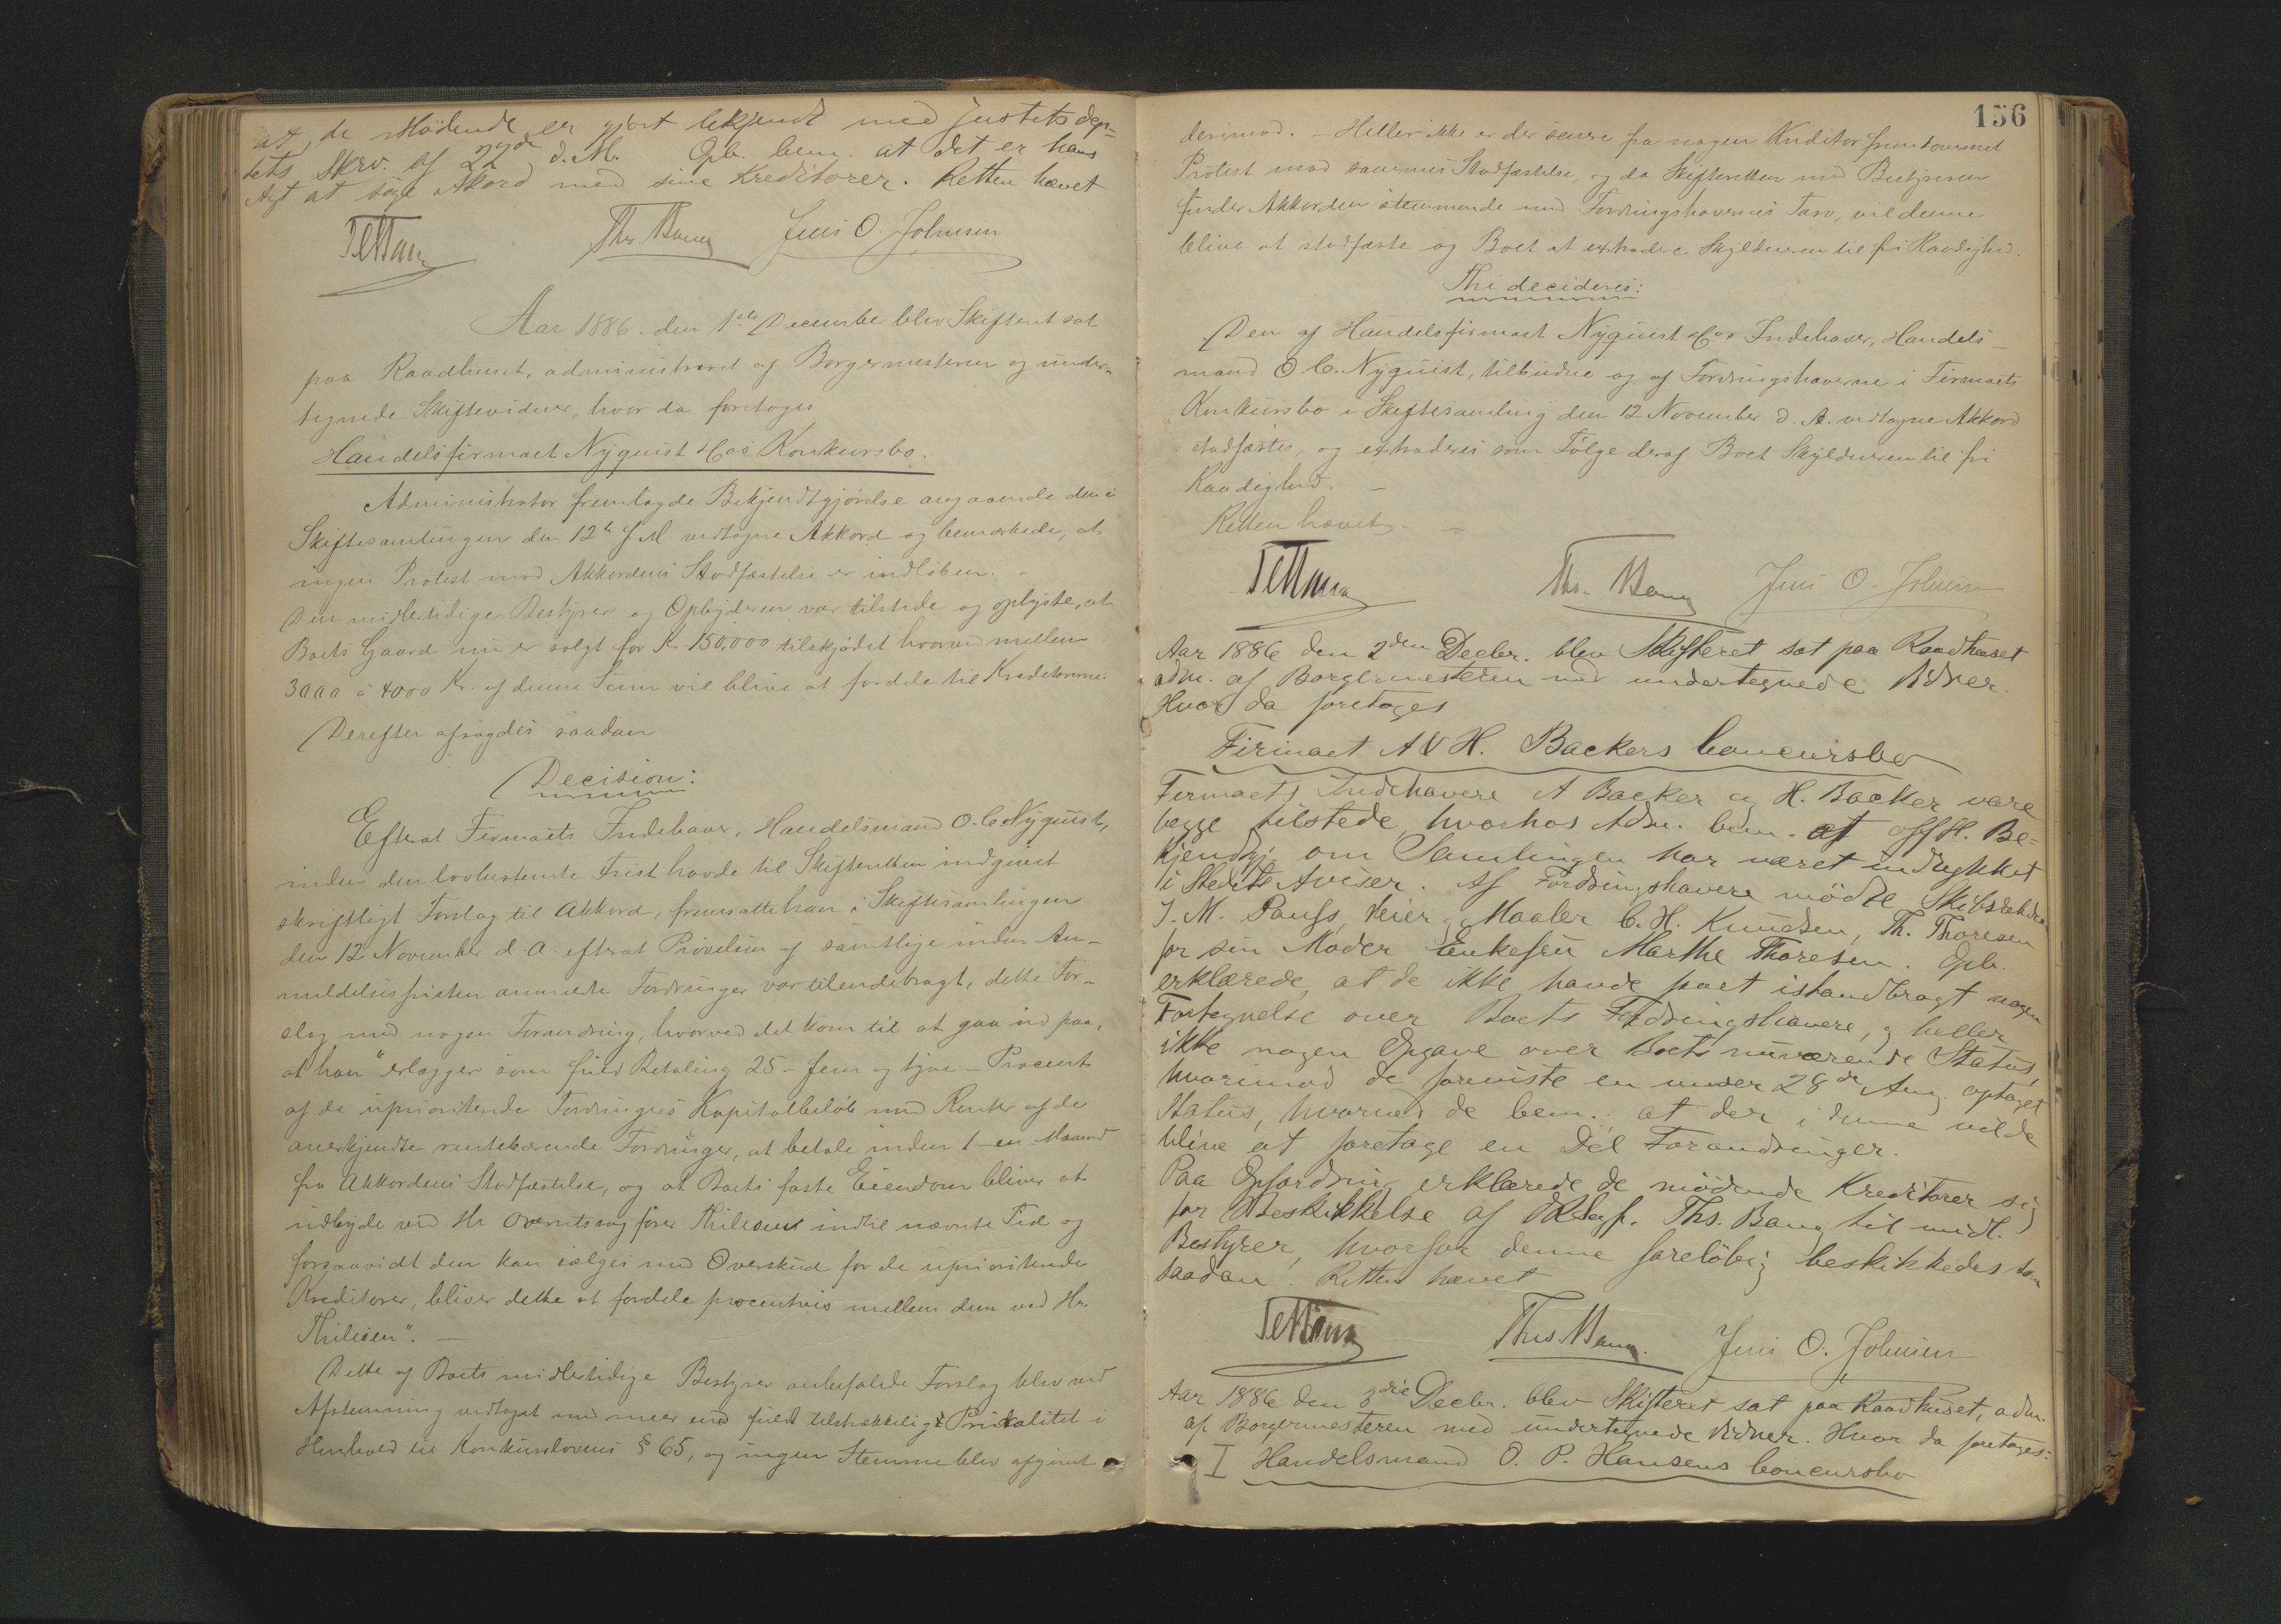 at de Mødende er gjort bekjendt med Justitsdep=
tets Skrv. af 22de d. M. Opb. bem. at det er hans
Agt at søge Akord med sine Kreditorer. Retten hævet
Ths Bang Jens O. Johnsen
Aar 1886 den 1ste December blev Skifteret sat
paa Raadhuset, administreret af Borgermesteren og under-
tegnede Skiftevidner, hvor da foretoges
Handelsfirmaet Nyquist & Cos Konkursbo.
Administrator fremlagde Bekjendtgjørelse angaaende den i
Skiftesamlingen den 12te f. M. vedtagne Akkord og bemærkede, at
ingen Protest mod Akkordens Stadfæstelse er indløben. –
Den midlertidige Bestyrer og Opbyderen var tilstede og oplyste, at
Boets Gaard nu er solgt for Kr. 150,000 tilskjødet hvorved mellem
3000 á 4000 Kr. af denne Sum vil blive at fordele til Kreditorerne.
Derefter afsagdes saadan
Decision:
Efterat Firmaets Indehaver, Handelsmand O. C. Nyquist,
inden den lovbestemte Frist havde til Skifteretten indgivet
skriftligt Forslag til Akkord, fremsatte han i Skiftesamlingen
den 12 November d. A. efterat Prøvelsen af samtlige inden An-
meldelsesfristen anmeldte Fordringer var tilendebragt, dette For-
slag med nogen Forandring, hvorved det kom til at gaa ud paa,
at han "erlægger som fuld Betaling 25 – fem og tyve – Procent
af de uprioriterede Fordringers Kapitalbeløb med Renter af de
anerkjendte rentebærende Fordringer, at betale inden 1 – en Maaned
fra Akkordens Stadfæstelse, og at Boets faste Eiendom bliver at
udbyde ved Hr Overretssagfører Thilesen indtil nævnte Tid og
forsaavidt den kan sælges med Overskud for de uprioriterede
Kreditorer, bliver dette at fordele procentvis mellem dem ved Hr.
Thilesen". –
Dette af Boets midlertidige Bestyrer anbefalede Forslag blev ved
Afstemning vedtaget med meer end fuldt tilstrækkelig Pluralitet i
Henhold til Konkurslovens § 65, og ingen Stemme blev afgivet
156
derimod. – Heller ikke er der senere fra nogen Kreditor fremkommet
Protest mod sammes Stadfæstelse, og da Skifteretten med Bestyreren
finder Akkorden stemmende med Fordringshavernes Tarv, vil denne
blive at stadfæste og Boet at extradere Skyldneren til fri Raadighed.
Thi decideres:
Den af Handelsfirmaet Nyquist & Cos Indehaver, Handels-
mand O. C. Nyquist, tilbudne og af Fordringshaverne i Firmaets
Konkursbo i Skiftesamling den 12 November d. A. vedtagne Akkord
stadfæstes, og extraderes som Følge deraf Boet Skyldneren til fri
Raadighed. –
Retten hævet. –
Ths. Bang Jens O. Johnsen
Aar 1886 den 2den Decbr. blev Skifteret sat paa Raadhuset
adm. af Borgermesteren med undertegnede Vidner.
Hvor da foretages
Firmaet A & H. Backers Concursbo
Firmaets Indehavere A Backer og H. Backer vare
begge tilstede, hvorhos Adm. bem. at off. Be=
kjendtg. om Samlingen har været indrykket
i Stedets Aviser. Af Fordringshavere mødte Skibsreder
J. M. Pauss, Veier og Maaler C. H. Knudsen, Th. Thoresen
for sin Moder Enkefru Marthe Thoresen. Opb.
erklærede, at de ikke havde faaet istandbragt nogen
Fortegnelse over Boets Fordringshavere, og heller
ikke nogen Opgave over Boets nuværende Status,
hvorimod de foreviste en under 28de Aug. optaget
Status, hvorved de bem. at der i denne vilde
blive at foretage en Del Forandringer.
Paa Opfordring erklærede de mødende Kreditorer sig
for Beskikkelse af Ths. Bang til midl.
Bestyrer, hvorfor denne foreløbig beskikkedes som
saadan. Retten hævet
Ths Bang. Jens O. Johnsen
Aar 1886 den 3die Decbr. blev Skifteret sat paa Raadhuset, adm.
af Borgermesteren med undertegnede Vidner. Hvor da foretages:
I Handelsmand O. P. Hansens Concursbo